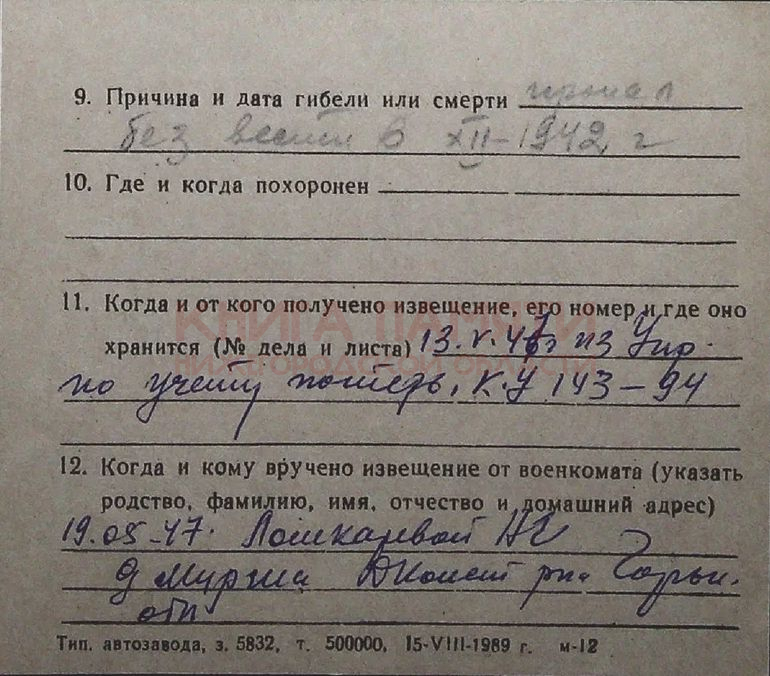 9. Причина и дата гибели или смерти пропал
без вести в XII-1942 г
10. Где и когда похоронен
11. Когда и от кого получено извещение, его номер и где оно
КНИГА ПАМЯТИ
хранится (№ дела и листа) 13.V.47г из Упр.
по учету потерь, К.У 143-94
12. Когда и кому вручено извещение от военкомата (указать
родство, фамилию, имя, отчество и домашний адрес)
19.05-47. Лошкаревой
д Д Конст рна Горьк.
обл
Тип. автозавода, з. 5832, т. 500000, 15-VIII-1989 г. м-12